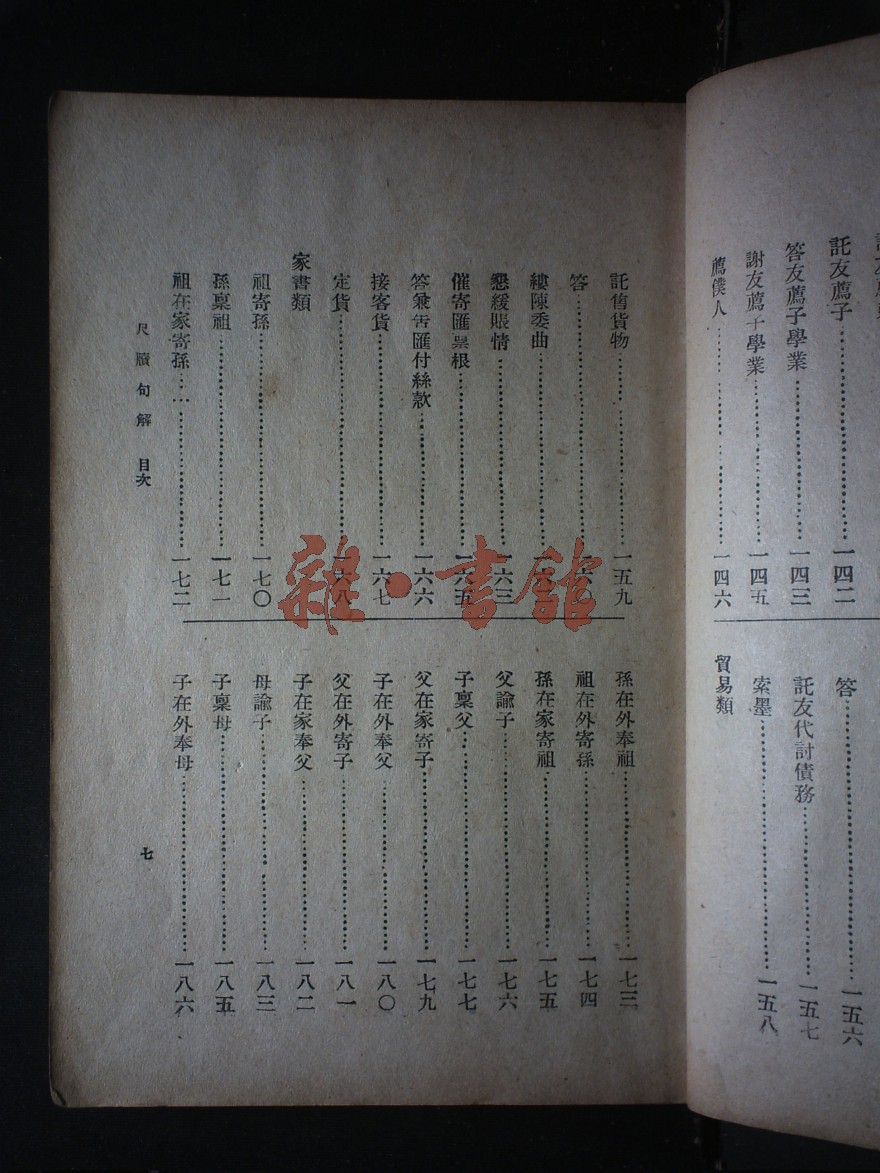 託友薦子……一四二
答友薦子學業……一四三
謝友薦子學業……一四五
薦僕人……一四六
貿易類
答……一五六
託友代討債務……一五七
索墨……一五八
託售貨物……一五九
答……一六〇
縷陳委曲……一六
懇緩賬情……一六三
催寄匯票根……一六五
答兼告匯付絲款……一六六
接客貨……一六七
定貨……一六八
家書類
祖寄孫……一七〇
孫稟祖……一七一
祖在家寄孫……一七二
孫在外奉祖……一七三
祖在外寄孫……一七四
孫在家寄祖……一七五
父諭子……一七六
子稟父……一七七
父在家寄子……一七九
子在外奉父……一八〇
父在外寄子……一八一
子在家奉父……一八二
母諭子……一八三
子稟母……一八五
子在外奉母……一八六
尺牘句解 目次
七
雜·書館